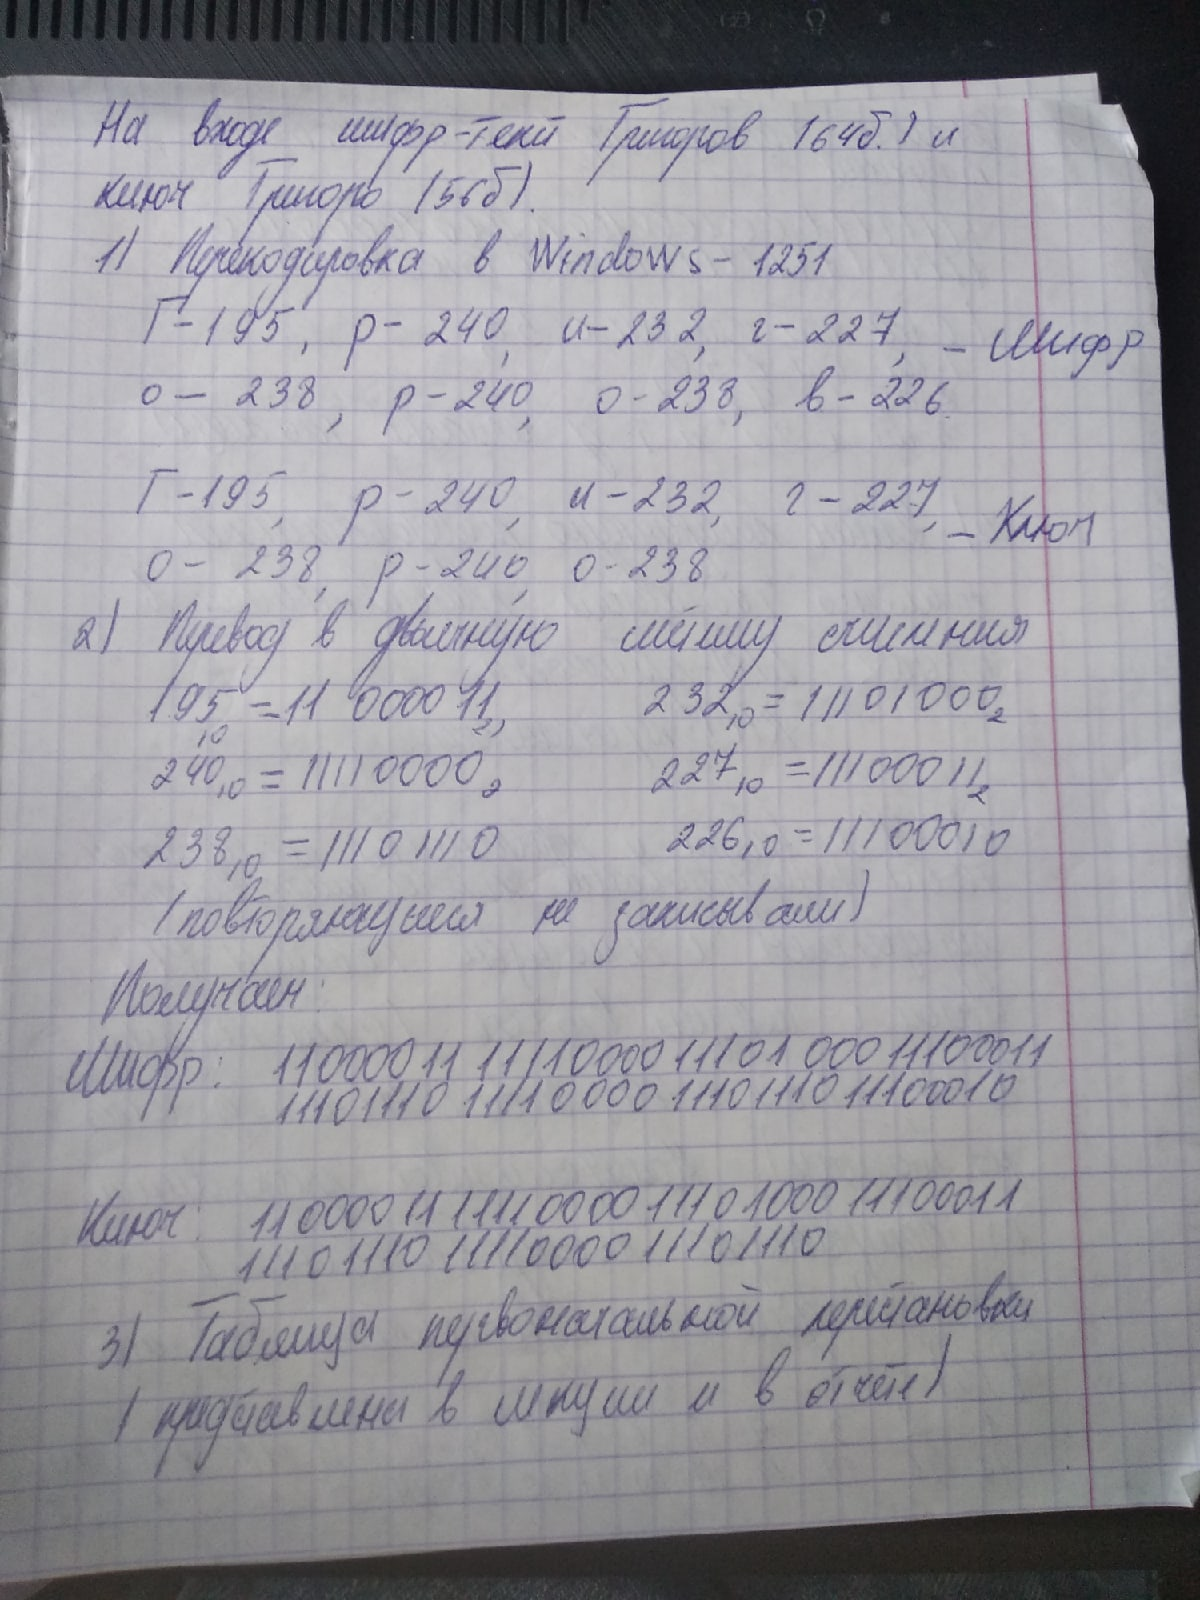 На входе шифр-текст Григоров (64б.) и
ключ Григоро (56б).
1) Перекодировка в Windows-1251
Г-195, р-240, и-232, г-227, - Шифр
о- 238, р-240, о-238, в-226.
Г-195, р-240, и-232, г-227, - Ключ
о- 238, р-240, о-238
2) Перевод в двоичную систему счисления
195₁₀ = 11000011₂, 232₁₀ = 11101000₂
240₁₀ = 11110000₂ 227₁₀ = 11100011₂
238₁₀ = 11101110 226₁₀ = 11100010
(повторяющиеся не записывали)
Получаем:
Шифр: 11000011 11110000 11101000 11100011
11101110 11110000 11101110 11100010
Ключ: 11000011 11110000 11101000 11100011
11101110 11110000 11101110
3) Таблица первоначальной перестановки
(представлена в лекции и в отчёте)